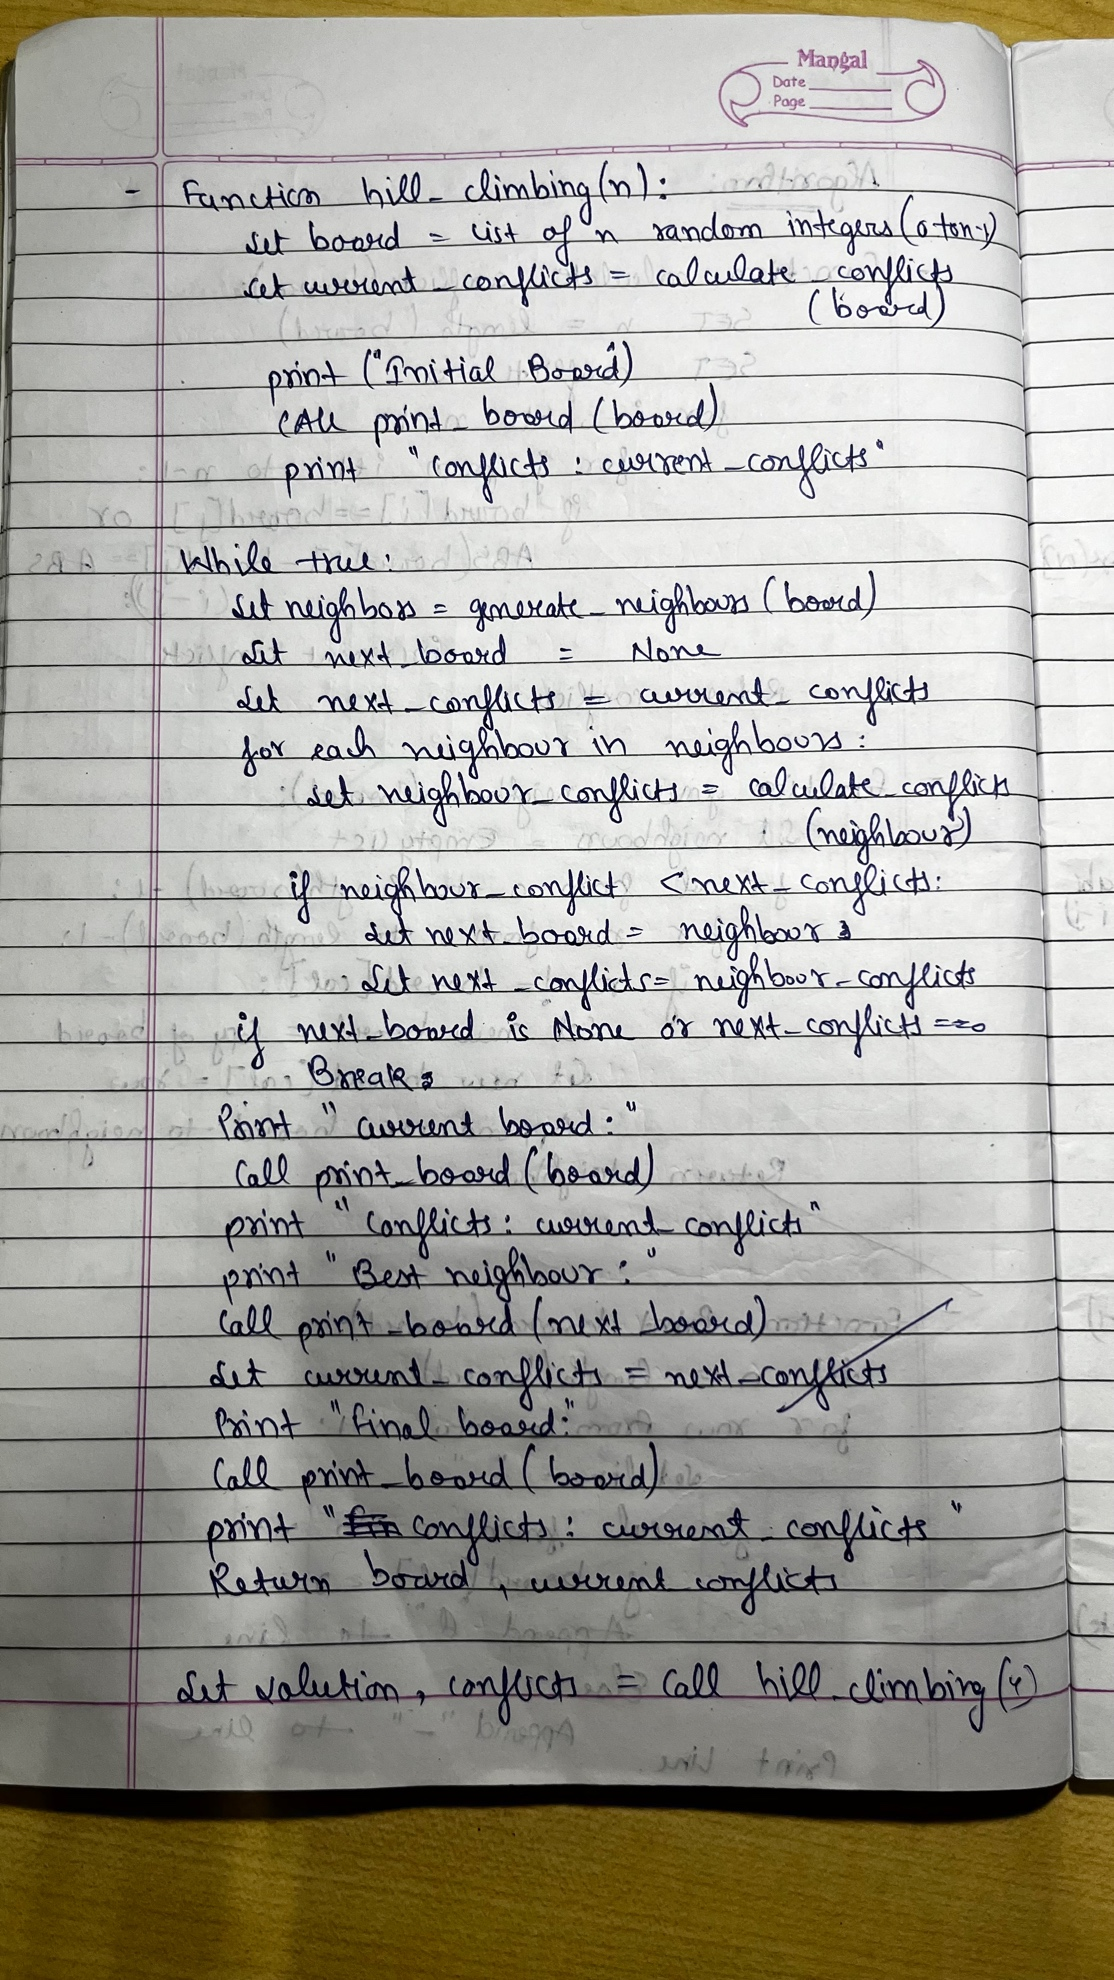 Mangal
Date
Page
- Function hill_climbing(n):
Set board = list of n random integers (0 to n-1)
set current_conflicts = calculate_conflicts
(board)
print ("Initial Board")
CAll print_board (board)
print "conflicts : current_conflicts"
While true:
Set neighbors = generate_neighbours (board)
Set next_board = None
Set next_conflicts = current_conflicts
for each neighbour in neighbours:
set neighbour_conflicts = calculate_conflicts
(neighbour)
if neighbour_conflict < next_conflicts:
Set next_board = neighbour
Set next_conflicts = neighbour_conflicts
if next_board is None or next_conflicts ==0
Break
Print "current board:"
Call print_board (board)
print "Conflicts: current_conflicts"
print "Best neighbour:"
Call print_board (next_board)
Set current_conflicts = next_conflicts
Print "final board:"
Call print_board (board)
print "conflicts : current_conflicts"
Return board, current conflicts
Set solution, conflicts = Call hill_climbing (4)